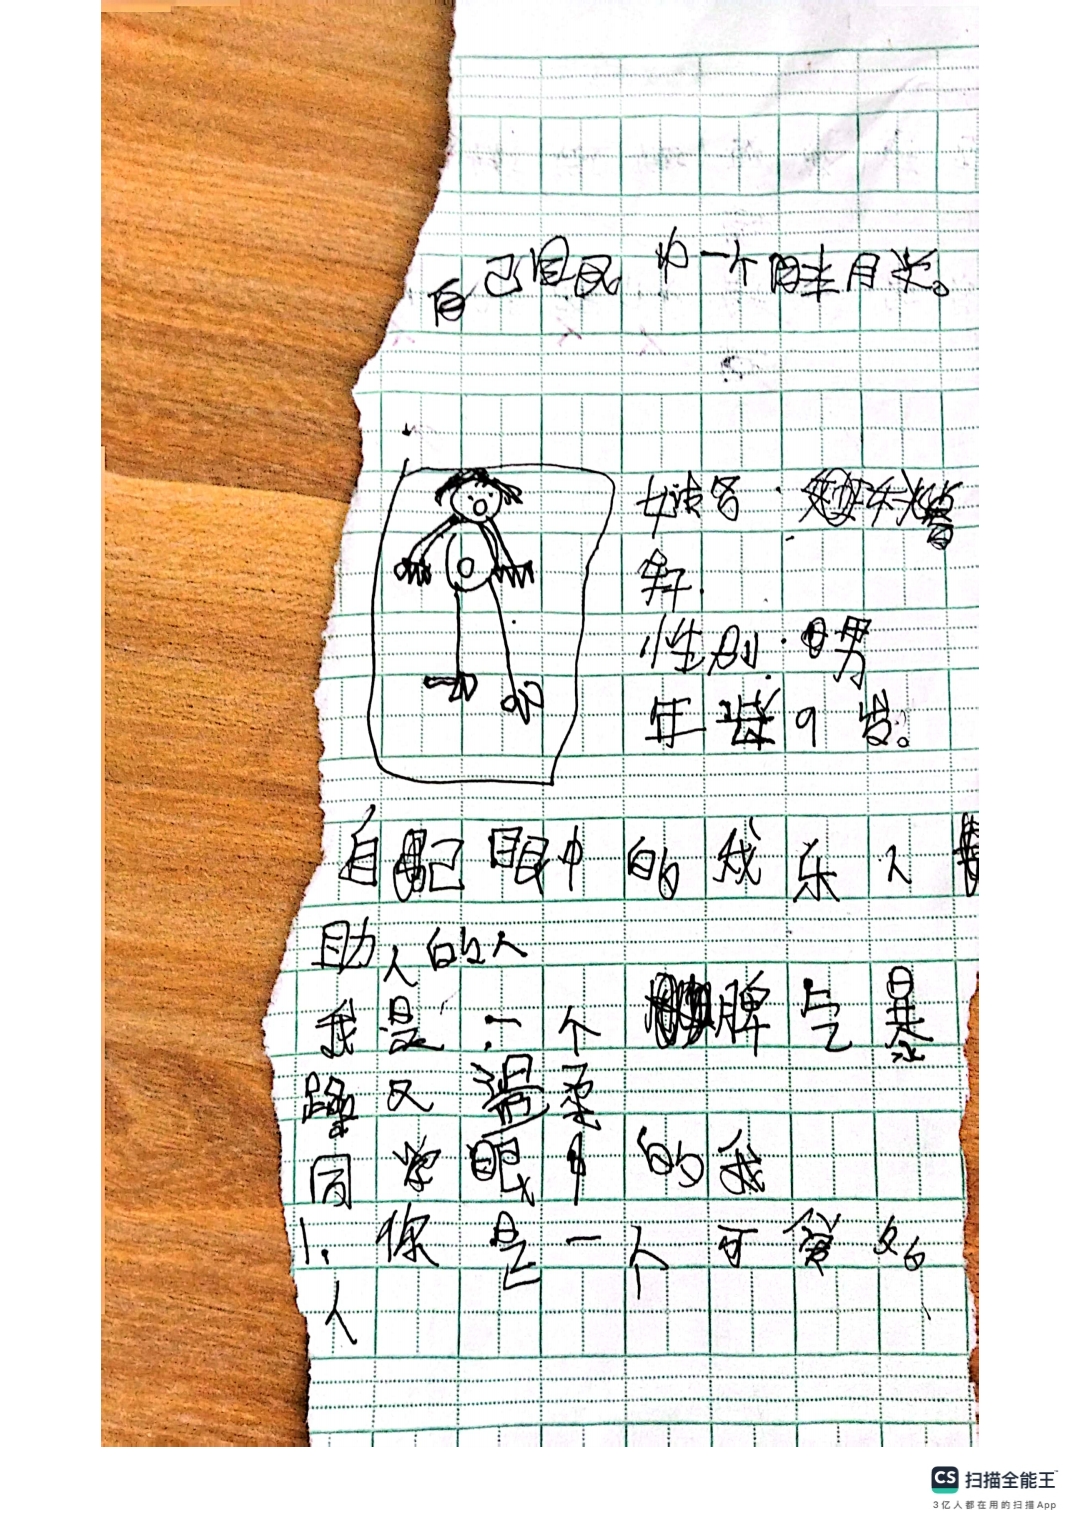 自己眼 一个月半月关。
姓名：
性别：男
年 9岁。
自己眼中的我 乐人
助人的人
我是一个脾气暴
躁又温柔
同学眼中的我
1.你是一个可爱的
人
CS 扫描全能王
3亿人都在用的扫描App